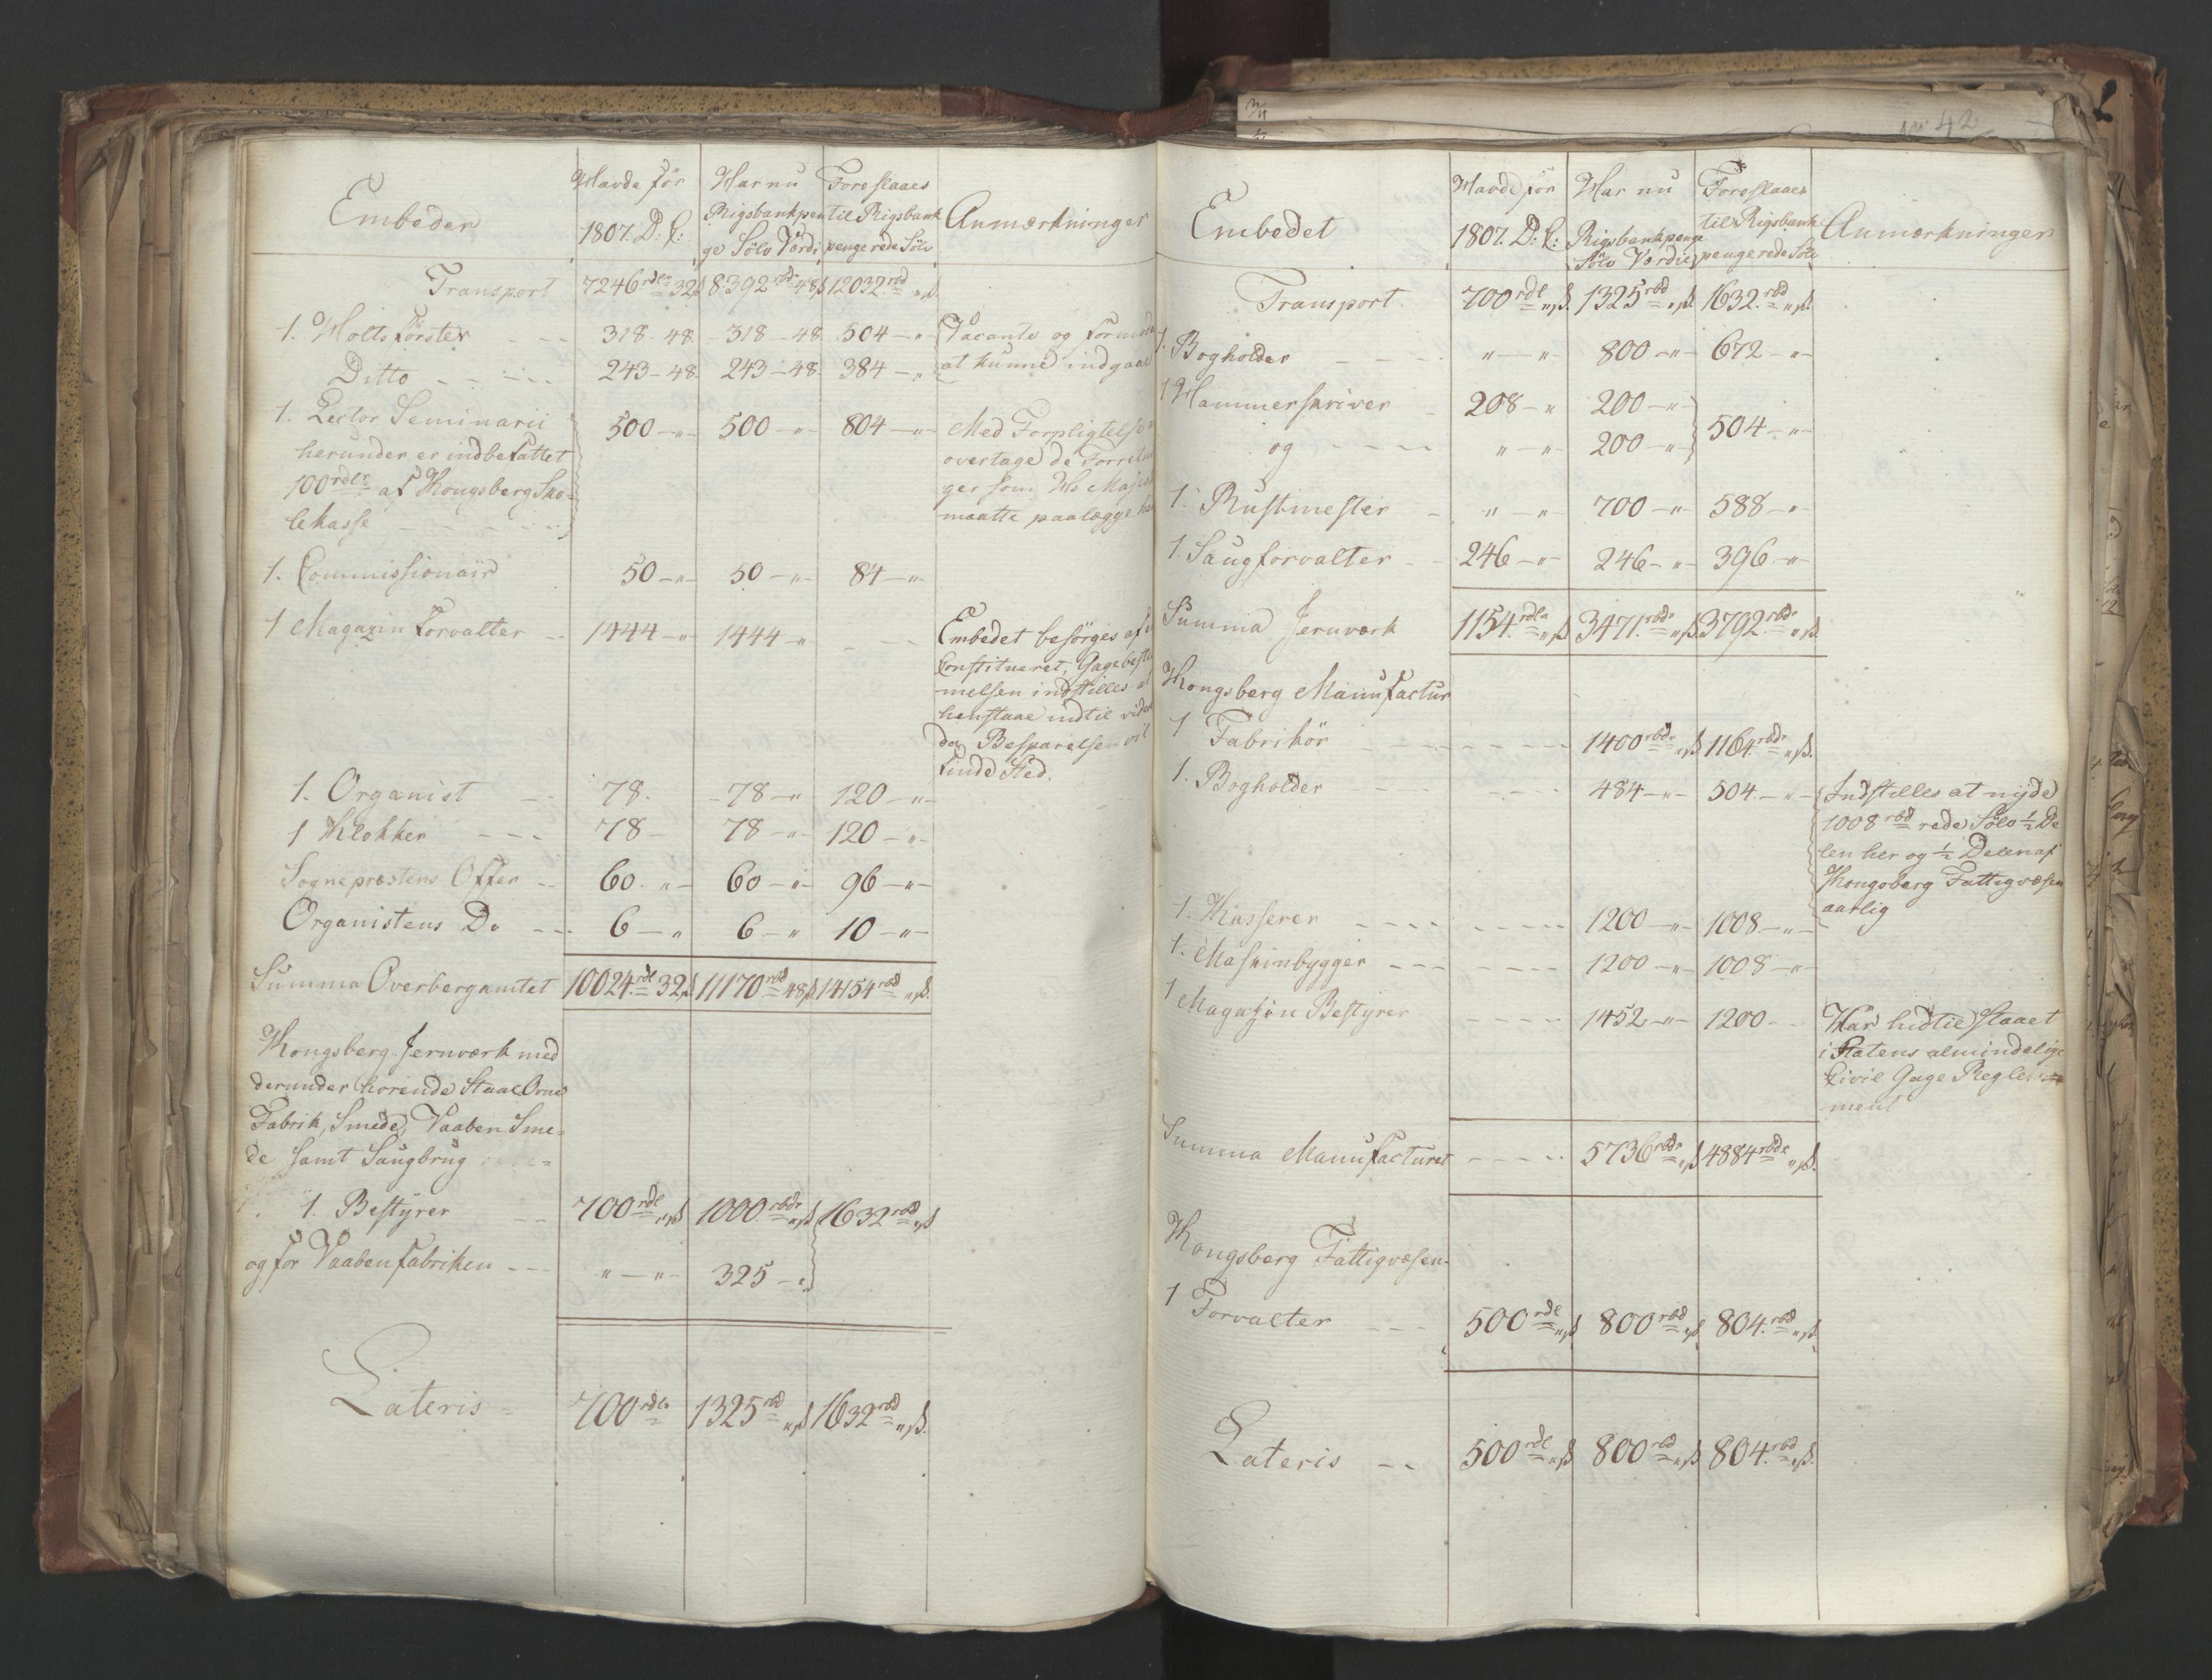 Embeder | Havde før 1807. D: C: | Har nu Rigsbankpenge Sölv Værdi | Foreslaaes til Rigsbankpenge rede Sölv | Anmærkninger
Transport 7246 rdlr 32 ß 8392 rbdr 48 ß 12032 rbd " ß.
1. Holtsförster - - - 318 - 48. - 318 - 48. 504 - " - Vacante og formod
Ditto - - - - - 243 - 48. 243 - 48. 384 - " at kunne indgaae
1. Lector Seminarii 500 - " - 500 - " - 804 - " - Med Forpligtelse
herunder er indbefattet overtage de Forret
100 rdlr af Kongsberg Sko= ger som Hs Majes
lekasse - - - - - maatte paalægge ha
1. Commissionair 50 - " - 50 - " - 84 - " -
1 Magazin Forvalter - 1444 - " 1444 - " - - Embedet besörges af
Constitueret, Gagebeste
melsen indstilles
henstaae indtil vider
da Besparelse vil
finde Sted.
1. Organist - - 78. - 78 - " 120 - " -
1 Klokker - - - 78 - 78 - " - 120 - " -
Sognepræstens Offer - 60. " - 60 - " - 96 - " -
Organistens Do - - - 6 - " 6 - " 10 - " -
Summa Overbergamtet 10024 rdl 32 ß 11170 rbd 48 ß. 14154 rbd " ß.
Kongsberg Jernværk med
derunder hörende Staal Ovne
Fabrik, Smede, Vaaben Sme=
de samt Saugbrug
1. Bestyrer - - 700 rdl " ß 1000 rbdr " ß 1632 rbd " ß
og for Vaabenfabriken - - - " - " - 325 - "
Lateris 700 rdlr 1325 rbd " ß 1632 rbd " ß.
No 42
Embedet | Havde för 1807. D: C: | Har nu Rigsbankpenge Sölv Værdie | Foreslaaes til Rigsbankpenge rede Sölv | Anmærkninger
Transport 700 rdl " ß. 1325 rbd " ß. 1632. rbd " ß.
1. Bogholder - - - - " - " - 800 - " - 672 - " -
1 Hammerskriver - 208 - " 200 - " -
504 - " -
og - - - - " - " - 200 - " -
1. Rustmester - " - " - 700 - " - 588 - " -
1. Saugforvalter - - 246 - " - 246 - " - 396 - " -
Summa Jernværk 1154 rdlr " ß 3471. rbdr " ß 3792. rbdr " ß.
Kongsberg Manufactur
1 Fabrikör - - - - - - - - 1400 rbdr " ß 1164. rbdr " ß.
1. Bogholder - - - - - - - 484 - " - 504 - " - Indstilles at nyde
1008 rbd rede Sölv ½ De
len her og ½ Delen af
Kongsberg Fattigvæsen
aarlig
1. Kasserer - - - - - - - - 1200 - " - 1008 - " -
1. Maskinbygger - - - - - - - 1200 - " - 1008 - " -
1 Magazin Bestyrer - - - - 1452 - " - 1200 - - Har hidtil staaet
i Statens almindelige
Civil Gage Regle
ment
Summa Manufacturet - - - - - 5736 rbdr " ß 4884 rbdr " ß.
Kongsberg Fattigvæsen.
1 Forvalter - - - 500 rdl " ß 800 rbd " ß 804. rbd " ß.
Lateris - - 500 rdl " ß 800 rbd " ß 804. rbd " ß.